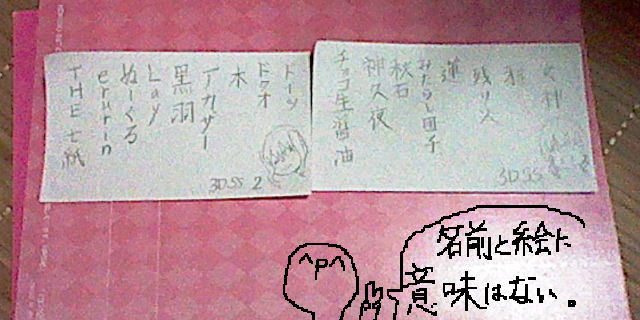 女神
雅
残り人
蓮
みたらし団子
秋石
神久夜
チョコ生醤油
3DSS
ドーツ
ドクオ
木
アカザー
黒羽
Lay
ぬーくろ
erurin
THE 七紙
3DSS 2
名前と絵に
意味はない。
^p^